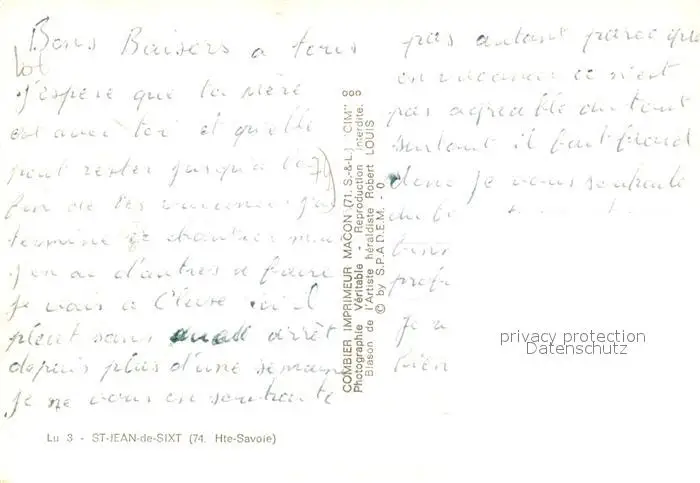 Bons Baisers a tous
j'espere que ta mère
est avec toi et qu'elle
peut rester jusqu'a la
fin de tes vacances j'ai
termine le chantier mais
j'en ai d'autres a faire
je vais a Cluse ou il
pleut sans arrêt
depuis plus d'une semaine
je ne vous en souhaite
pas autant parce que
en vacances ce n'est
pas agreable du tout
surtout il fait froid
donc je vous souhaite
du b
prof
je
bien
COMBIER IMPRIMEUR MACON (71. S.-&-L.) "CIM"
Photographie Véritable - Reproduction interdite.
Blason de l'Artiste héraldiste Robert LOUIS
© by S.P.A.D.E.M. - 0
privacy protection
Datenschutz
Lu 3 - ST-JEAN-de-SIXT (74. Hte-Savoie)